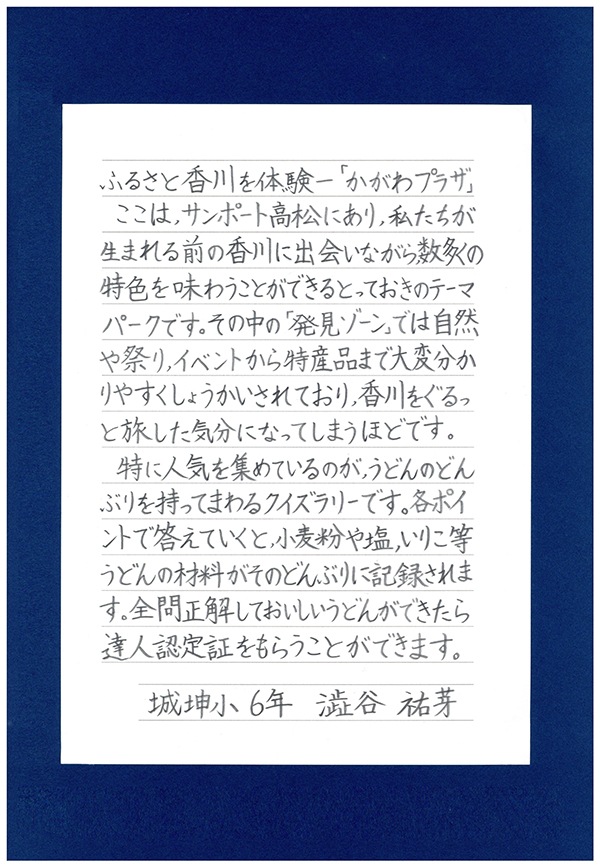 ふるさと香川を体験ー「かがわプラザ」
ここは,サンポート高松にあり,私たちが
生まれる前の香川に出会いながら,数多くの
特色を味わうことができるとっておきのテーマ
パークです。その中の「発見ゾーン」では自然
や祭り,イベントから特産品まで大変分か
りやすくしょうかいされており,香川をぐるっ
と旅した気分になってしまうほどです。
特に人気を集めているのが,うどんのどん
ぶりを持ってまわるクイズラリーです。各ポイ
ントで答えていくと,小麦粉や塩,いりこ等
うどんの材料がそのどんぶりに記録されま
す。全問正解しておいしいうどんができたら
達人認定証をもらうことができます。
城坤小 6年 澁谷 祐芽